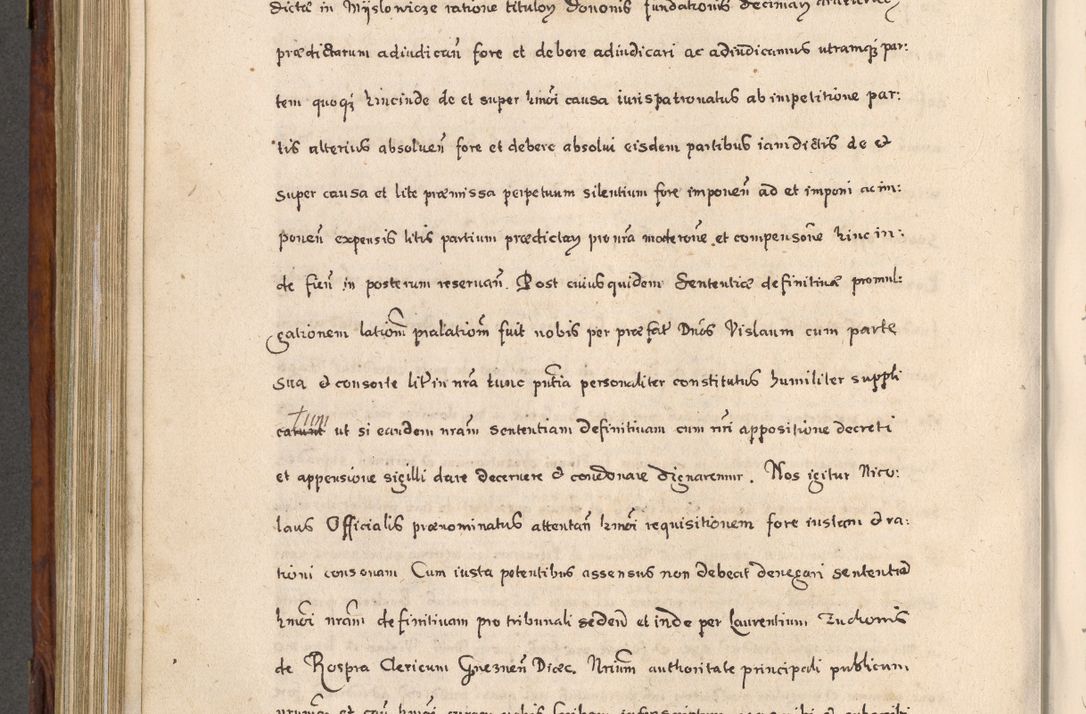 dictæ in Myslowicze ratione tituloꝝ Dononis fundationis decimaꝝ
prædictarum adiudicañ fore et debere adiudicari ac adiudicamus utramqꝫ par:
tem quoqꝫ hincinde de et super hmõi causa iurispatronatus ab impetitione par:
tis alterius absolueñ fore et debere absolui eisdem partibus iamdictis de et
super causa et lite præmissa perpetuum silentium fore imponeñ ad et imponi ac im:
poneñ expensis litis partium prædictaꝝ pro nrã moderone et compensone hinc in:
de fieñ in posterum reseruañ. Post cuiusquidem Sententiæ definitiuæ promul:
gationem latiom prælatiom fuit nobis per præfať Dnõs Vislaum cum parte
sua et consorte liť in nrã tunc pñtia personaliter constitutus humiliter suppli
carunt tum ut si eandem nrãm sententiam definitiuam cum nri appositione decreti
et appensione sigilli dare decernere et condonare dignaremur. Nos igitur Nico:
laus Officialis prænominatus attentañ hmõi requisitionem fore iustam et ra:
tioni consonam, Cum iusta petentibus assensus non debeat denegari sententiã
hmõi nrãm definitiuam pro tribunali sedeñ et inde per Laurentium Zuchonis
de Rospra Clericum Gnezneñ Diæc. Nrium authoritate principali publicum